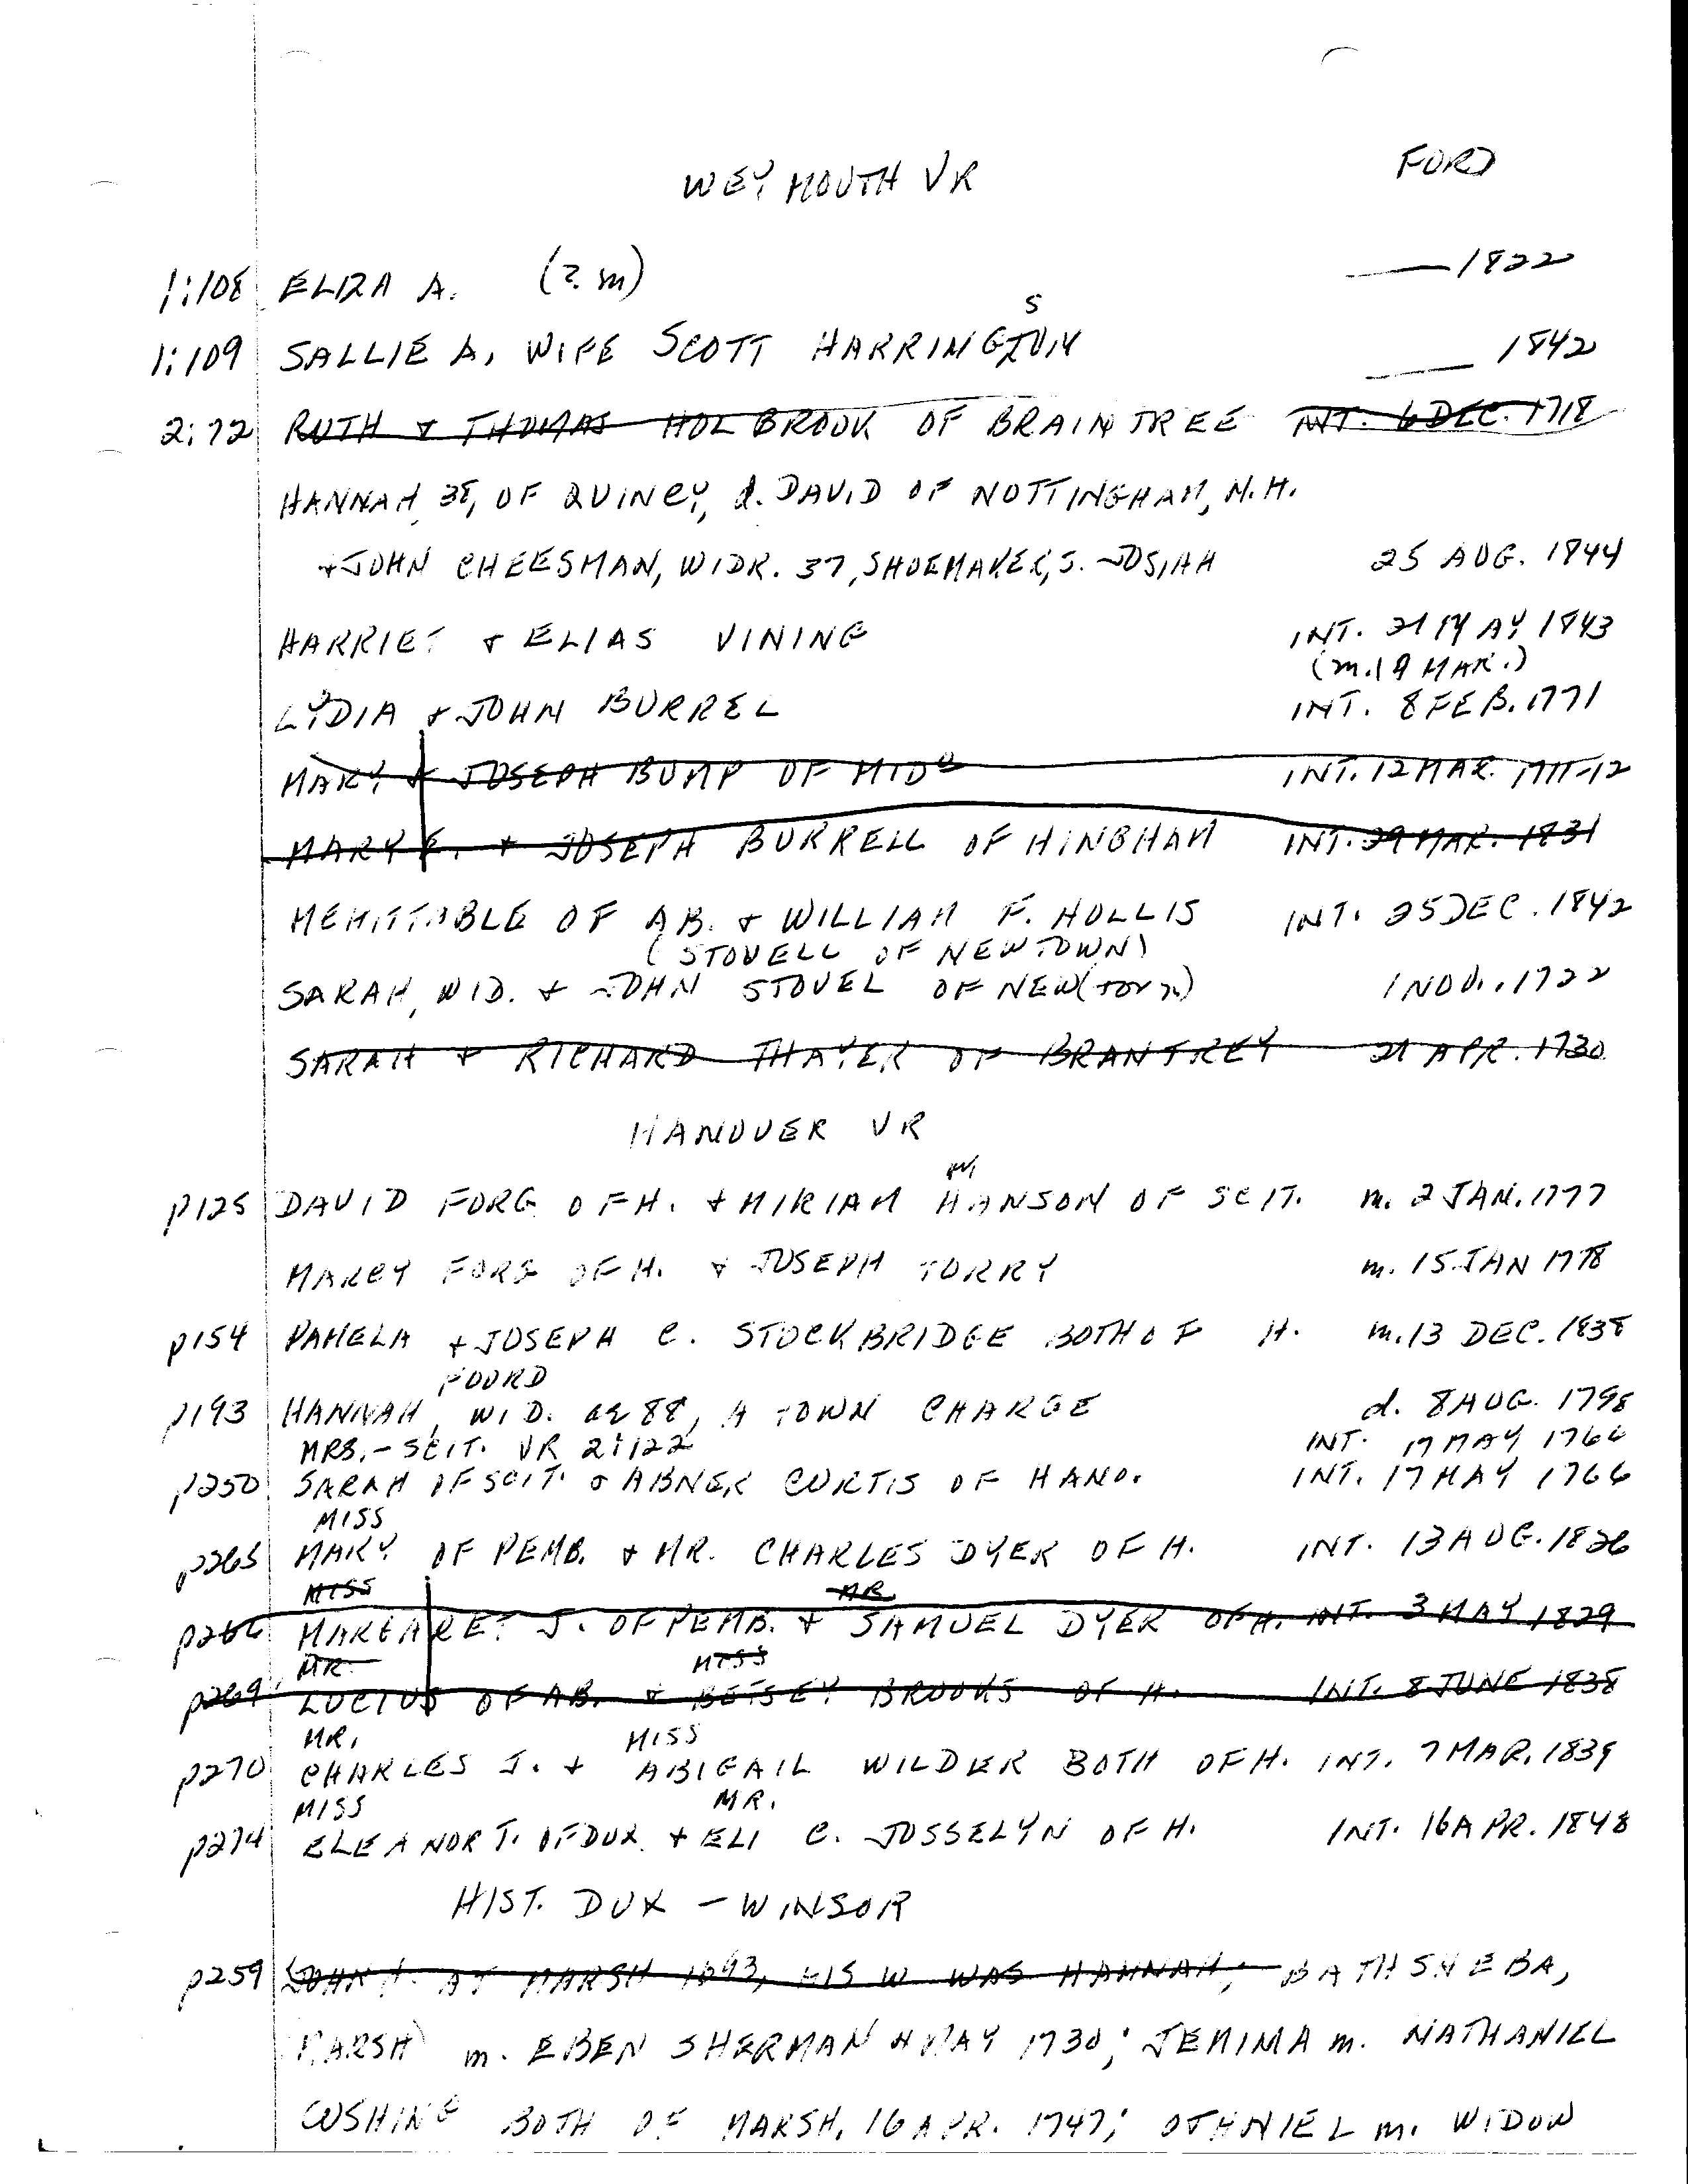 FORD
WEYMOUTH VR
1:108 ELIZA A. (? m) — 1822
S
1:109 SALLIE A, WIFE SCOTT HARRINGTON — 1842
2:72 RUTH & THOMAS HOLBROOK OF BRAINTREE INT. 6 DEC. 1718
HANNAH, 38, OF QUINCY, d. DAVID OF NOTTINGHAM, N.H.
+ JOHN CHEESMAN, WIDR. 37, SHOEMAKER, S. JOSIAH 25 AUG. 1844
HARRIET & ELIAS VINING INT. 21 MAY 1843
(m. 19 MAR.)
LYDIA & JOHN BURREL INT. 8 FEB. 1771
MARY & JOSEPH BUMP OF MIDO INT. 12 MAR. 1711-12
MARY E. + JOSEPH BURRELL OF HINGHAM INT. 29 MAR. 1831
MEHITTABLE OF AB. & WILLIAM F. HOLLIS INT. 25 DEC. 1842
(STOVELL OF NEWTOWN)
SARAH, WID. & JOHN STOVEL OF NEW(TOWN) 1 NOV. 1722
SARAH & RICHARD THAYER OF BRANTREY 21 APR. 1730
HANOVER VR
p125 DAVID FORG OF H. + MIRIAM HANSON OF SCIT. m. 2 JAN. 1777
MARCY FORG OF H. & JOSEPH TORRY m. 15 JAN 1778
p154 PAMELA + JOSEPH C. STOCKBRIDGE BOTH OF H. m. 13 DEC. 1838
FOORD
p193 HANNAH, WID. ae 88, A TOWN CHARGE d. 8 AUG. 1798
MRS. - SCIT. VR 2:122 INT. 17 MAY 1766
p250 SARAH OF SCIT. & ABNER CURTIS OF HANO. INT. 17 MAY 1766
MISS
p265 MARY OF PEMB. & MR. CHARLES DYER OF H. INT. 13 AUG. 1826
MISS MR
p266 MARGARET J. OF PEMB. + SAMUEL DYER OF H. INT. 3 MAY 1829
MR. MISS
p269 LUCIUS OF AB. & BETSEY BROOKS OF H. INT. 8 JUNE 1838
MR. MISS
p270 CHARLES J. + ABIGAIL WILDER BOTH OF H. INT. 7 MAR. 1839
MISS MR.
p274 ELEANOR T. OF DUX. + ELI C. JOSSELYN OF H. INT. 16 APR. 1848
HIST. DUX - WINSOR
p259 AT MARSH 1693, HIS W WAS HANNAH; BATHSHEBA,
MARSH m. EBEN SHERMAN MAY 1730; JEMIMA m. NATHANIEL
CUSHING BOTH OF MARSH, 16 APR. 1747; OTHNIEL m. WIDOW